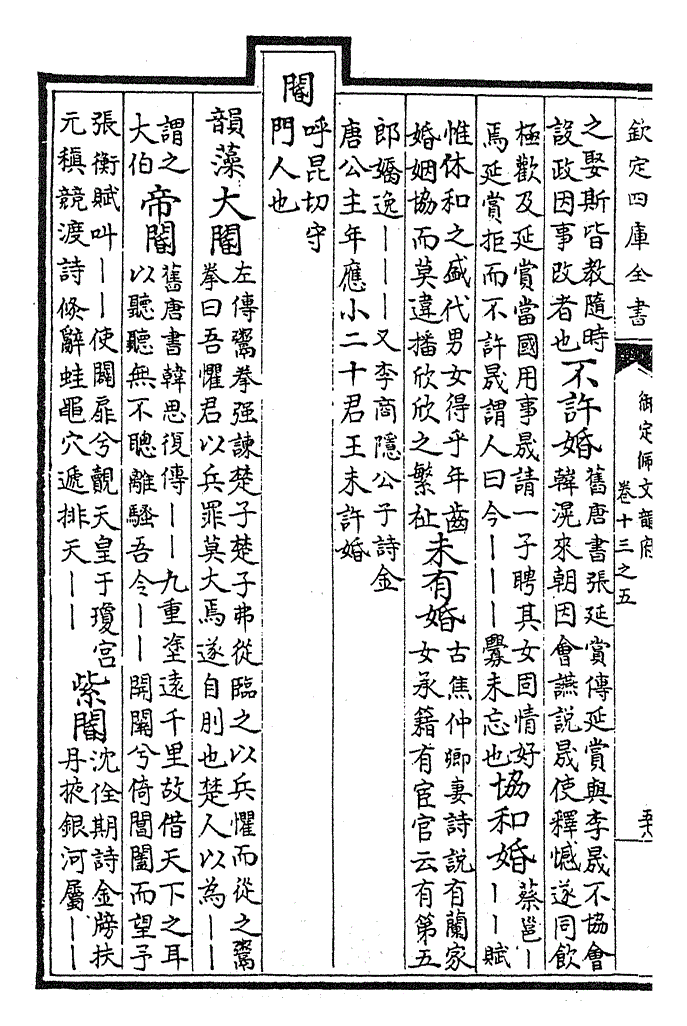 欽定四庫全書
御定佩文韻府
卷十三之五
之娶斯皆教隨時
設政因事改者也
不許婚
舊唐書張延賞傳延賞與李晟不協會
韓滉來朝因會讌説晟使釋憾遂同飲
極歡及延賞當國用事晟請一子聘其女固情好
焉延賞拒而不許晟謂人曰今｜｜｜釁未忘也
協和婚
蔡邕｜
｜｜賦
惟休和之盛代男女得乎年齒
婚姻協而莫違播欣欣之繁祉
未有婚
古焦仲卿妻詩説有蘭家
女承籍有宦官云有第五
郎嬌逸｜｜｜又李商隱公子詩金
唐公主年應小二十君王未許婚
閽
呼昆切守
門人也
韻藻
大閽
左傳鬻拳强諫楚子楚子弗從臨之以兵懼而從之鬻
拳曰吾懼君以兵罪莫大焉遂自刖也楚人以為｜｜
謂之
大伯
帝閽
舊唐書韓思復傳｜｜九重塗遠千里故借天下之耳
以聽聽無不聰離騷吾令｜｜開闗兮倚閶闔而望予
張衡賦叫｜｜使闢扉兮覿天皇于瓊宫
元稹競渡詩倏辭蛙黽穴遞排天｜｜
紫閽
沈佺期詩金牓扶
丹掖銀河屬｜｜